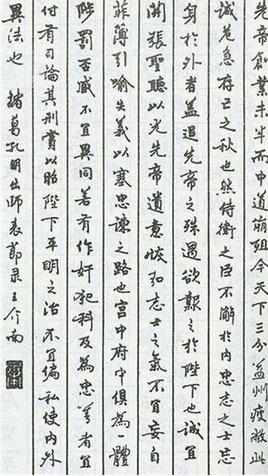 先帝創業未半而中道崩殂今天下三分益州疲敝此
誠危急存亡之秋也然侍衛之臣不懈於內忠志之士忘
身於外者蓋追先帝之殊遇欲報之於陛下也誠宜
開張聖聽以光先帝遺悳恢弘志士之氣不宜妄自
菲薄引喻失義以塞忠諫之路也宮中府中俱為一體
陟罰否臧不宜異同若有作奸犯科及為忠善者宜
付有司論其刑賞以昭陛下平明之治不宜偏私使內外
異法也 諸葛孔明出師表節录王